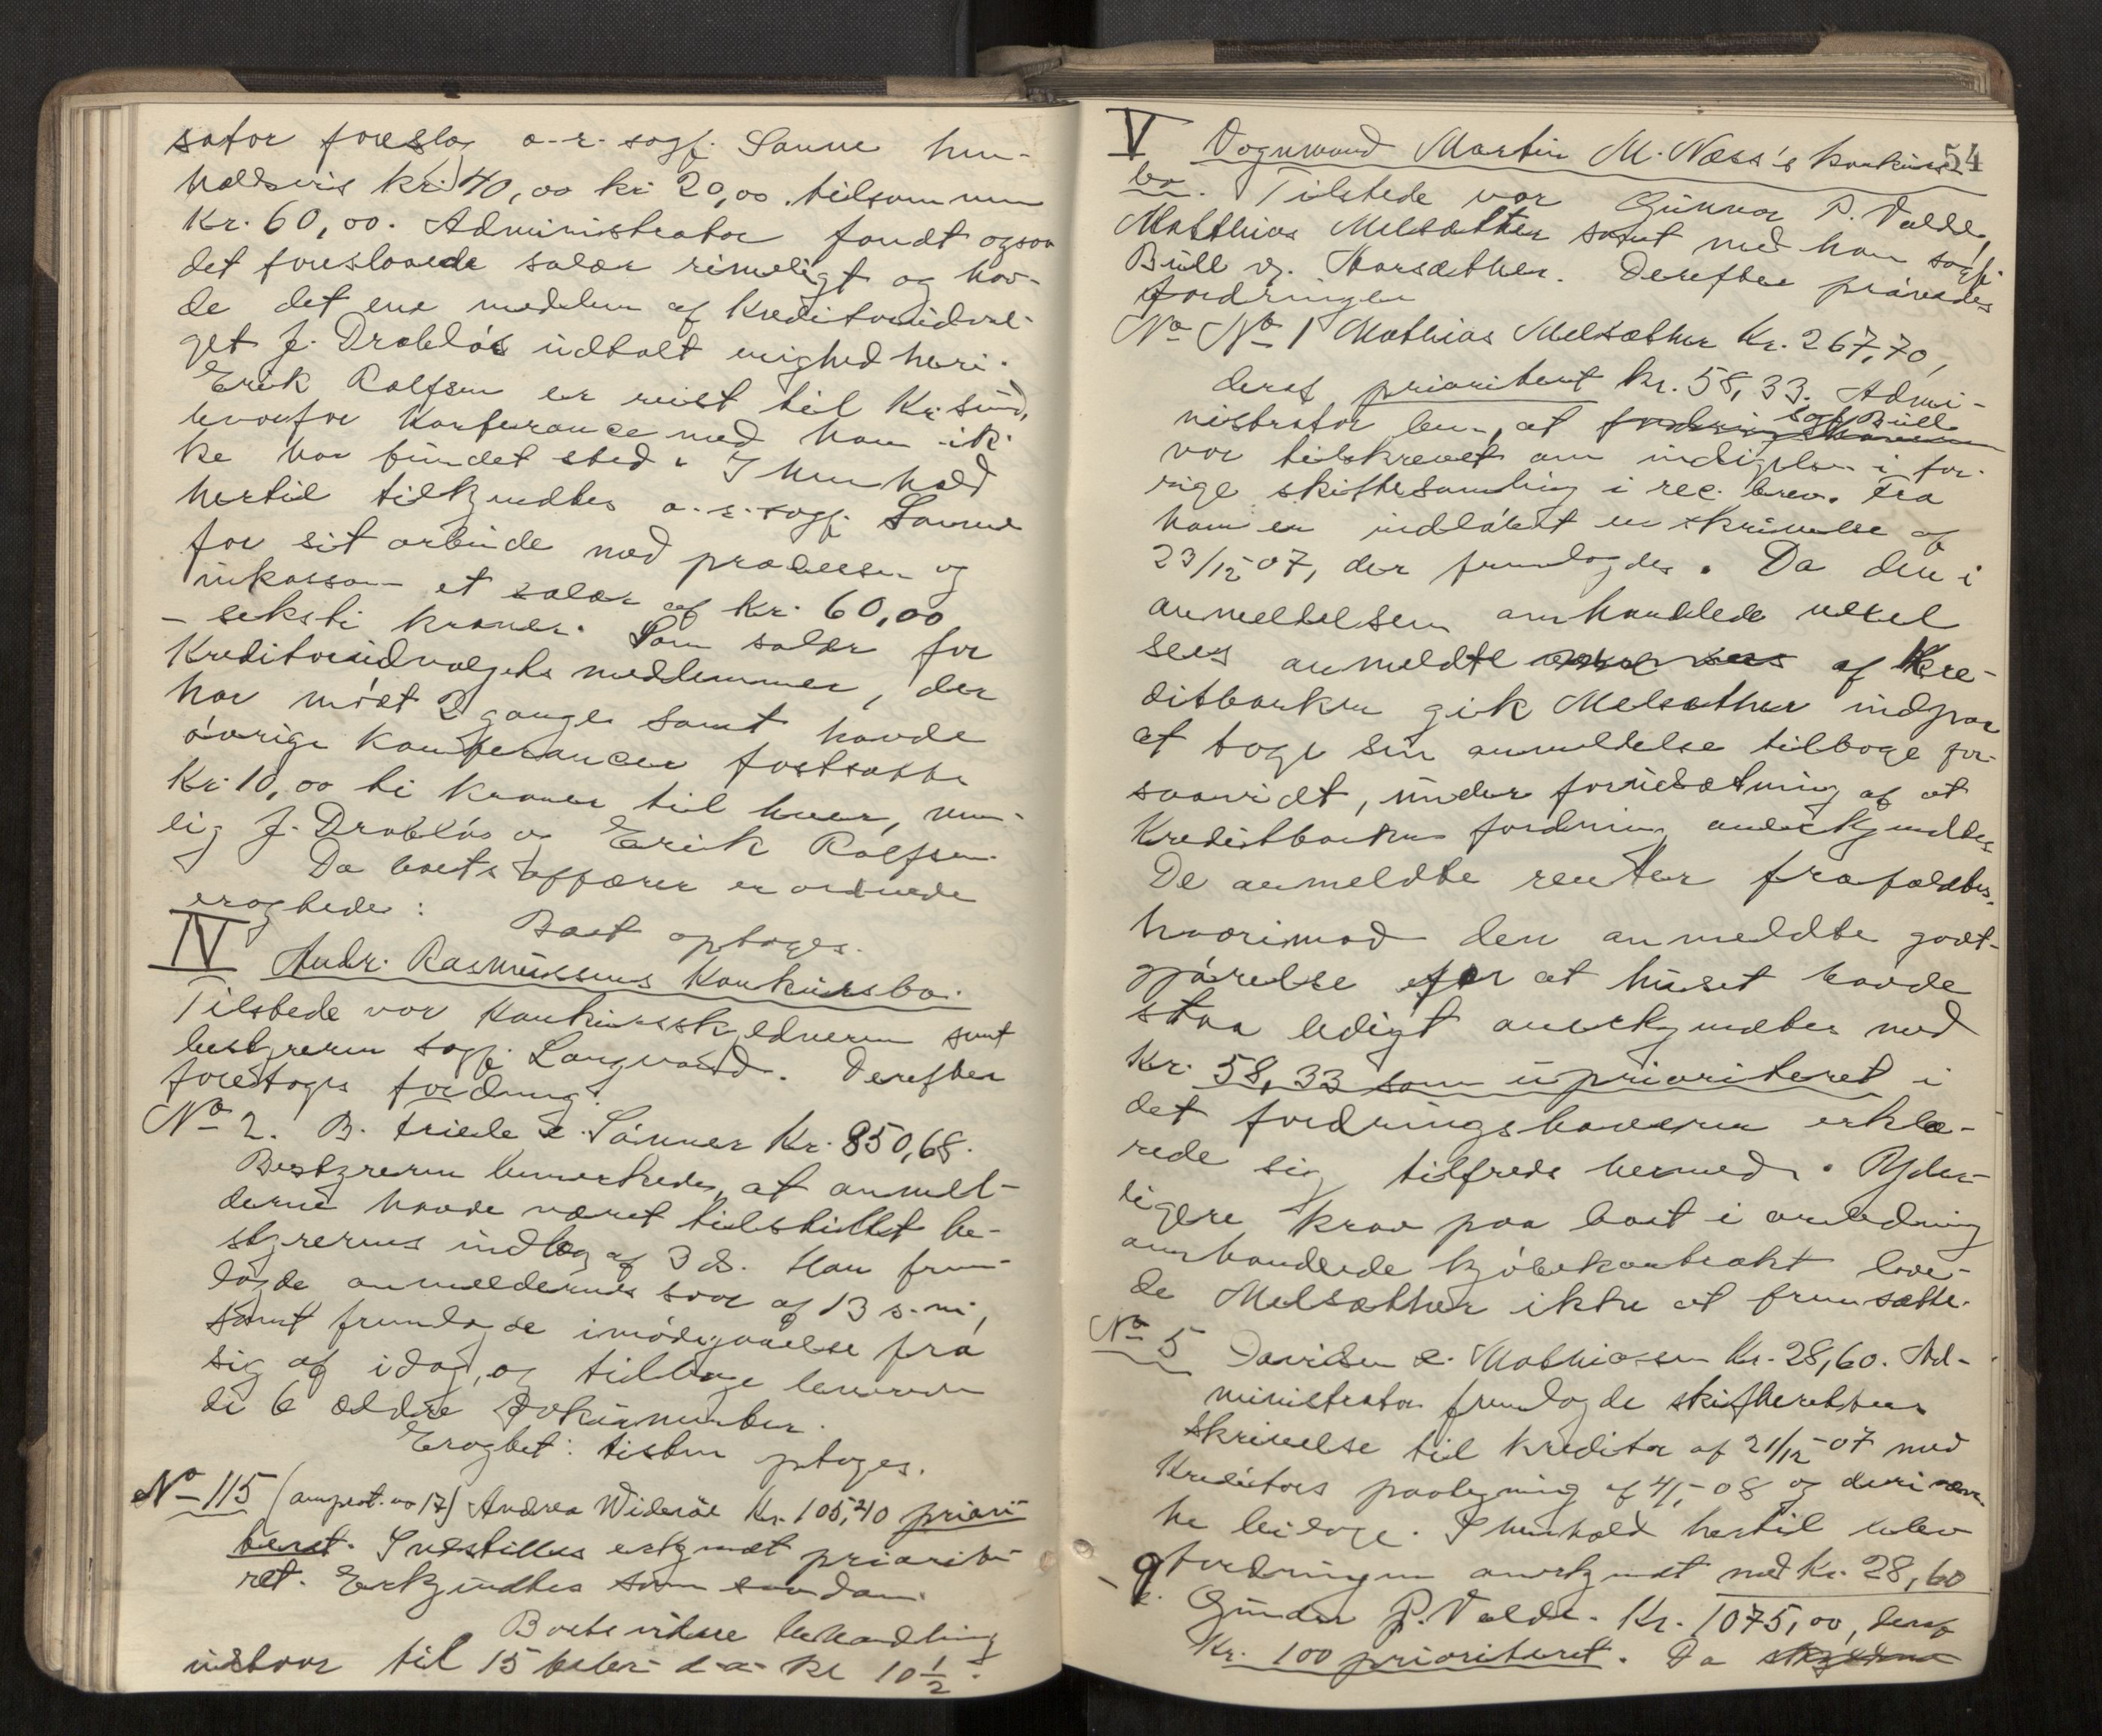 sator foreslog o.r.sagf. Sanne hen-
holdsvis kr. 40,00 kr 20,00. tilsammen
Kr. 60,00. Administrator fandt ogsaa
det foreslaaede salær rimeligt og hav-
de det ene medlem af kreditorudval-
get J. Drabløs udtalt enighed heri.
Erik Rolfsen er reist til Kr.sund,
hvorfor konferance med ham ik-
ke har fundet sted. I henhold
hertil tilkjendtes o.r.sagf. Sanne
for sit arbeide med processen og
inkasson et salær af Kr. 60,00
- seksti kroner. Som salær for
Kreditorudvalgets medlemmer, der
har mødt 2 gange samt havde
øvrige konferancer fastsattes
Kr. 10,00 ti kroner til hver, nem-
lig J. Drabløs og Erik Rolfsen.
Da boets affærer er ordnede
eragtedes:
Boet optages.
IV Andr. Rasmussens Konkursbo.
Tilstede var konkursskyldneren samt
bestyreren sagf. Langvand. Derefter
foretoges fordring:
No 2. B. Friele & Sønner Kr. 850,68.
Bestyreren bemerkede, at anmel-
derne havde været tilstillet be-
styrerens indlæg af 3 ds. Han frem-
lagde anmeldernes svar af 13 s.m.,
samt fremlagde imødegaaelse fra
sig af idag, og tilbageleverede
de 6 ældre dokumenter.
Eragtet: tisten ptages.
No 115 (anpart. no 17) Andrea Widerøe Kr. 105,40 priori-
teret. Indstilles erkjendt priorite-
ret. Erkjendtes som saadan.
Boets videre behandling
udstaar til 15 feber d.a. kl 10 1/2.
54
V Vognmand Martin M. Næss's konkurs-
bo. Tilstede var Gunnar P. Valde,
Matthias Melsæther samt med ham sagf.
Bull og Harsæther. Derefter prøvedes
fordringen
No No 1 Mathias Melsæther Kr. 267,70,
deraf prioritert kr. 58,33. Admi-
nistrator bem., at sagf. Bull
var tilskrevet om indsigelsen i for-
rige skiftesamling i rec. brev. Fra
ham er indløbet en skrivelse af
23/12 07, der fremlagdes. Da den i
anmeldelsen omhandlede veksel
sees anmeldte af Kre-
ditbanken gik Melsæther indpaa
at tage sin anmeldelse tilbage for-
saavidt, under forudsætning af at
Kreditbankens fordring anderkjendtes.
De anmeldte renter frafaldtes,
hvorimod den anmeldte godt-
gjørelse for at huset havde
staa ledigt anerkjendtes med
Kr. 58,33 som uprioriteret i
det fordringshaveren erklæ-
rede sig tilfreds hermed. Yder-
ligere krav paa boet i anledning
omhandlede kjøbekontrakt love-
de Melsæther ikke at fremsætte.
No 5 Davidsen & Mathiassen Kr. 28,60. Ad-
ministrator fremlagde skifterettens
skrivelse til kreditor af 21/12 07 med
Kreditors paategning af 4/1 - 08 og deri nævn-
te bilage. I henhold hertil blev
fordringen anerkjendt med Kr. 28,60
- 9. Gunnar P. Valde. Kr. 1075,00, deraf
Kr. 100 prioriteret. Da